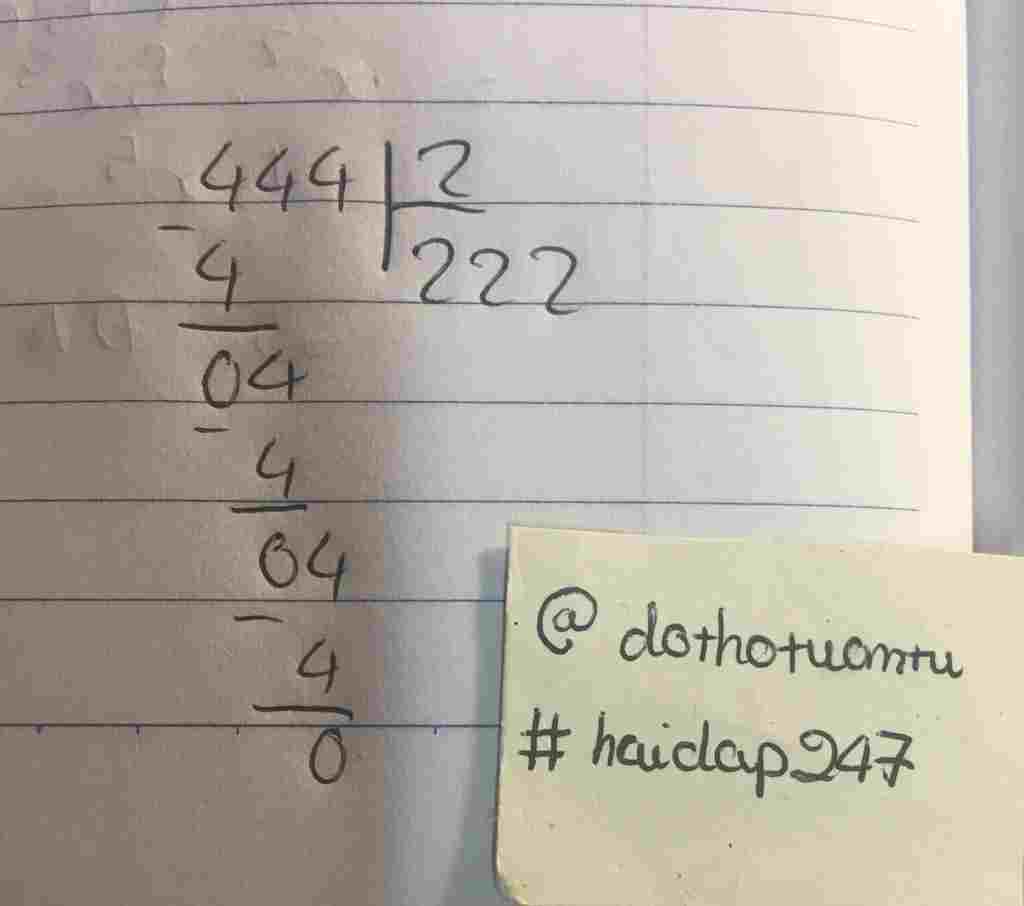 444 | 2
- 4 222
04
- 4
04
- 4
0
@ dothotuantu
# haidap247